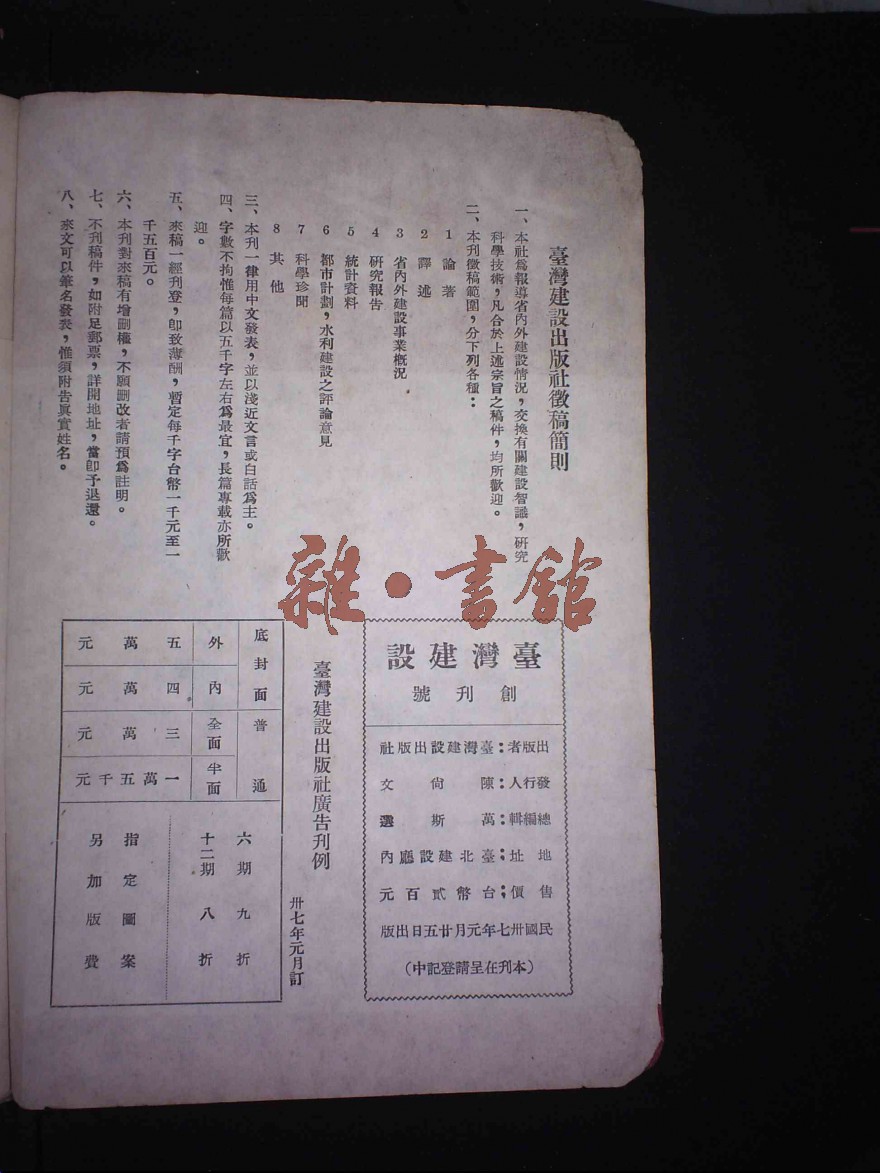 臺灣建設出版社徵稿簡則
一、本社爲報導省內外建設情況，交換有關建設智識，研究
科學技術，凡合於上述宗旨之稿件，均所歡迎。
二、本刊徵稿範圍，分下列各種：
1 論著
2 譯述
3 省內外建設事業概況
4 研究報告
5 統計資料
6 都市計劃，水利建設之評論意見
7 科學珍聞
8 其他
三、本刊一律用中文發表，並以淺近文言或白話爲主。
四、字數不拘惟每篇以五千字左右爲最宜，長篇專載亦所歡
迎。
五、來稿一經刊登，卽致薄酬，暫定每千字台幣一千元至一
千五百元。
六、本刊對來稿有增刪權，不願刪改者請預爲註明。
七、不刊稿件，如附足郵票，詳開地址，當卽予退還。
八、來文可以筆名發表，惟須附告眞實姓名。
雜・書館
臺灣建設
創刊號
出版者：臺灣建設出版社
發行人：陳尙文
總編輯：萬斯選
地址：臺北建設廳內
售價：台幣貳百元
民國卅七年元月廿五日出版
（本刋在呈請登記中）
臺灣建設出版社廣告刋例
卅七年元月訂
底封面 普通
外 內 全面 半面
五萬元
四萬元
三萬元
一萬五千元
六期九折
十二期八折
指定圖案
另加版費